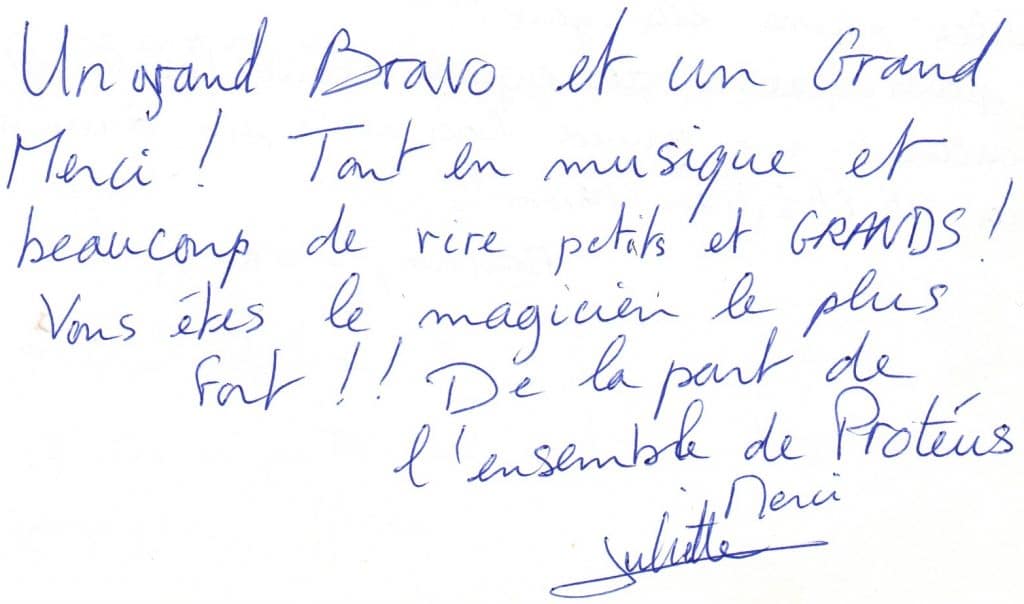 Un grand Bravo et un Grand
Merci ! Tout en musique et
beaucoup de rire petits et GRANDS !
Vous êtes le magicien le plus
Fort !! De la part de
l'ensemble de Protéus
Merci
Juliette